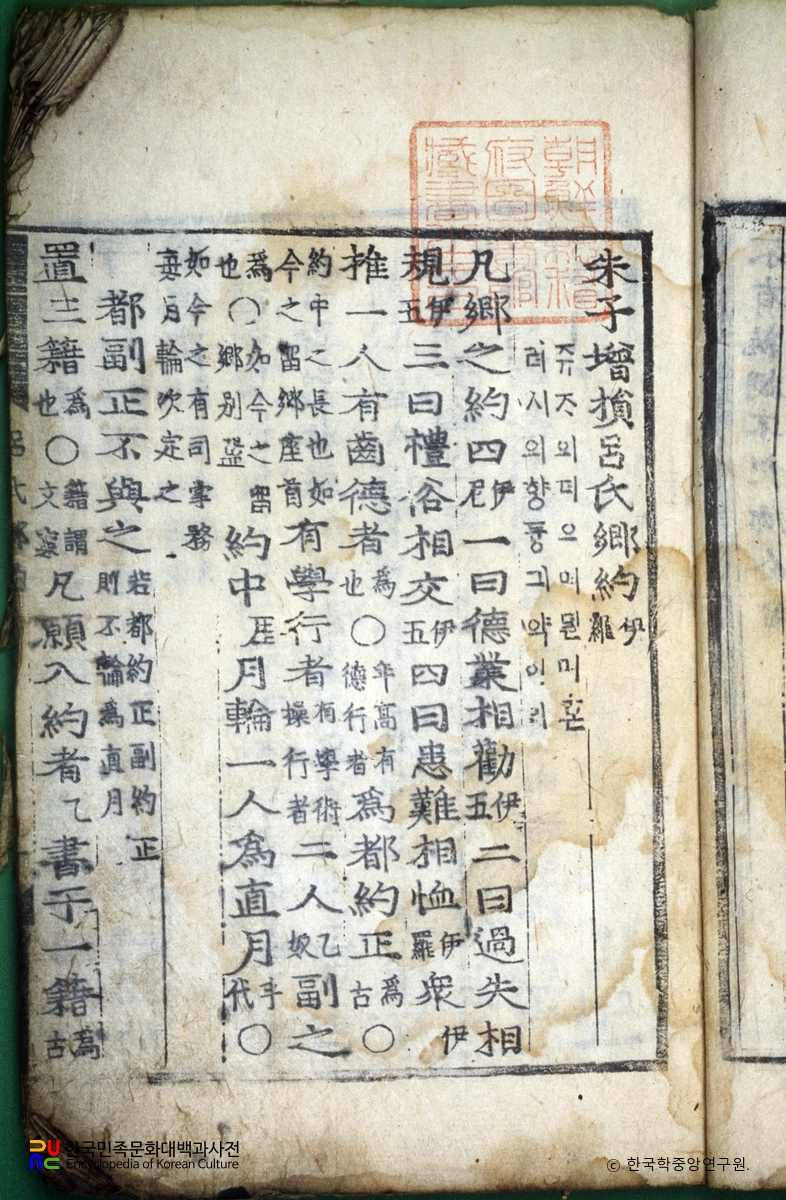 朱子增損呂氏鄕約伊羅
려시의향듕긔약이리
凡鄕之約四伊尼一曰德業相勸伊五二曰過失相
規伊五三曰禮俗相交伊五四曰患難相恤伊羅衆伊
推一人有齒德者爲也○年高有德行者爲都約正爲古○
約中之長也如今之留鄕座首有學行者有學術操行者二人乙奴副之
爲也○如今之留鄕別監約中厓月輪一人爲直月乎代○
如今之有司掌務每月輪次定之
都副正不與之若都約正副約正則不輪爲直月
置三籍爲也○籍謂文案凡願入約者乙書于一籍爲古
朝鮮總督府圖書館藏書之印
한국민족문화대백과사전
Encyclopedia of Korean Culture
© 한국학중앙연구원.